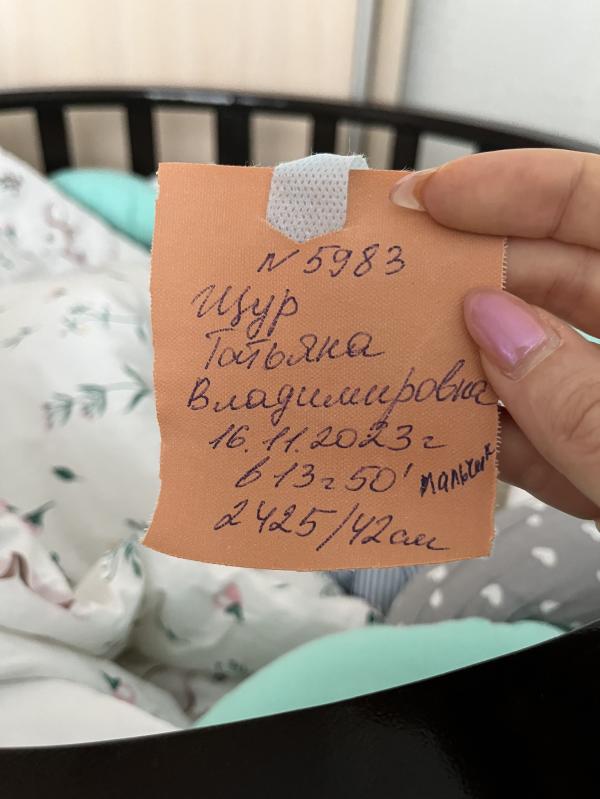 N 5983
Щур
Татьяна
Владимировна
16.11.2023г
в 13г 50' мальчик
2425/42см